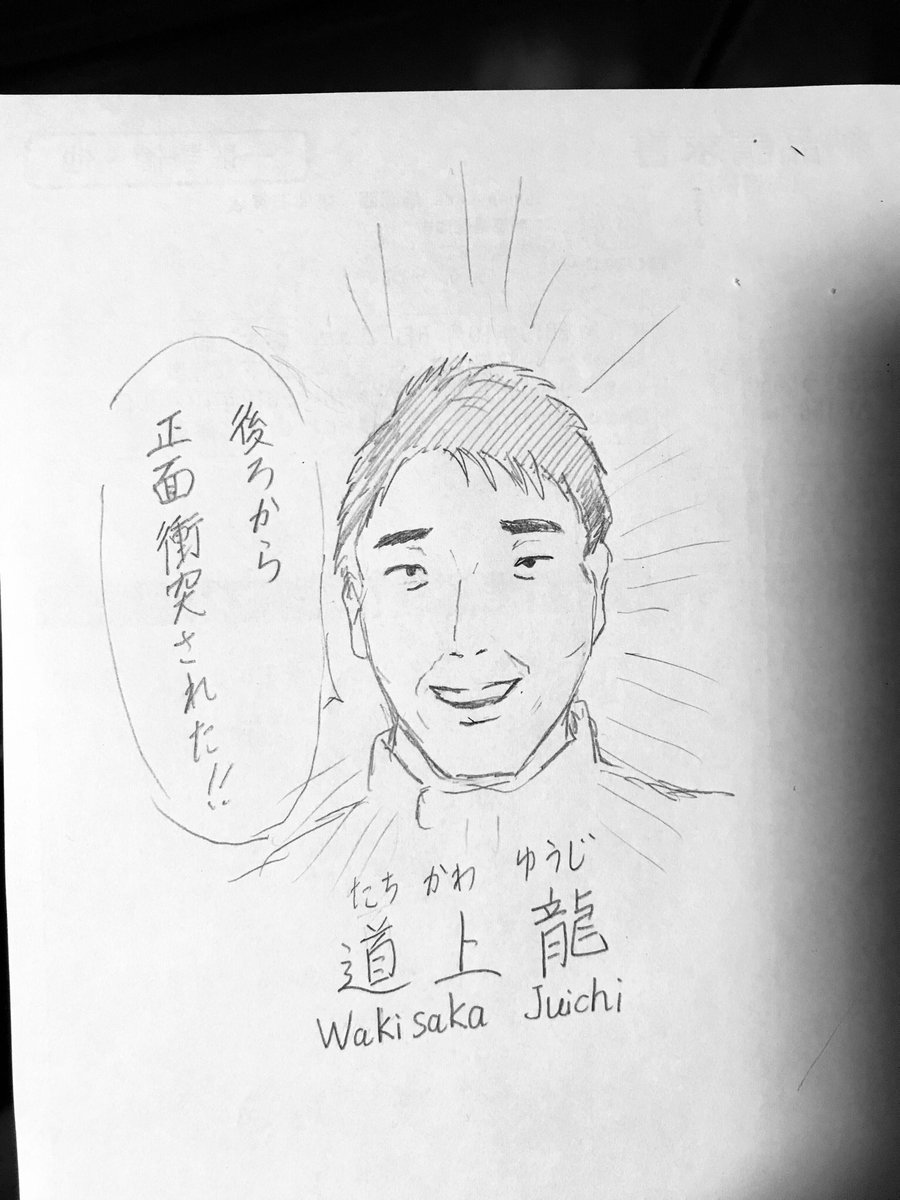 後ろから
正面衝突された!!
たちかわ ゆうじ
道上龍
Wakisaka Juichi